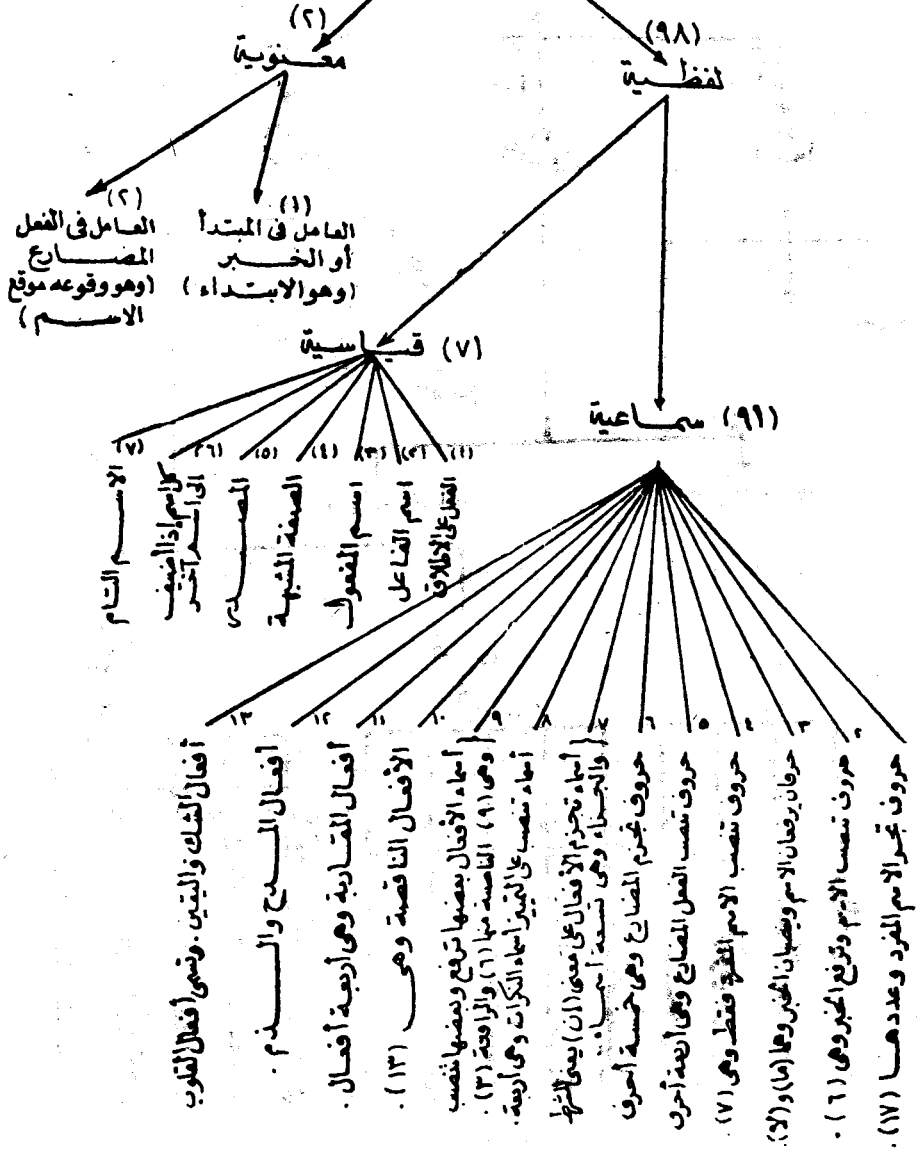 (٩٨)
لفظية
(٢)
معنوية
(١)
العامل في المبتدأ
أو الخبر
(وهو الابتداء)
(٢)
العامل في الفعل
المضارع
(وهو وقوعه موقع
الاسم)
(٧) قياسية
(١)
الفعل على الاطلاق
(٢)
اسم الفاعل
(٣)
اسم المفعول
(٤)
الصفة المشبهة
(٥)
المصدر
(٦)
كل اسم إذا أضيف
إلى اسم آخر
(٧)
الاسم التام
(٩١) سماعية
حروف تجر الاسم المفرد وعددها (١٧) .
٢
حروف تنصب الاسم وترفع الخبر وهي (٦) .
٣
حرفان يرفعان الاسم وينصبان الخبر وهما (ما) و (لا) .
٤
حروف تنصب الاسم المفرد فقط وهي (٧) .
٥
حروف تنصب الفعل المضارع وهي أربعة أحرف
٦
حروف تجزم المضارع وهي خمسة أحرف
٧
أسماء تجزم الأفعال على معنى (ان) يعني للشرط
والجزاء وهي تسعة أسماء .
٨
أسماء تنصب على التمييز أسماء النكرات وهي أربعة .
٩
أسماء الأفعال بعضها ترفع وبعضها تنصب
وهي (٩) الناصبة منها (٦) والرافعة (٣) .
١٠
الأفعال الناقصة وهي (١٣) .
١١
أفعال المقاربة وهي أربعة أفعال .
١٢
أفعال المدح والذم .
١٣
أفعال الشك واليقين . وتسمى أفعال القلوب